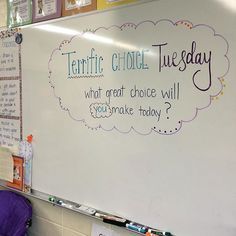 Terrific CHOICE Tuesday
what great choice will
you make today?